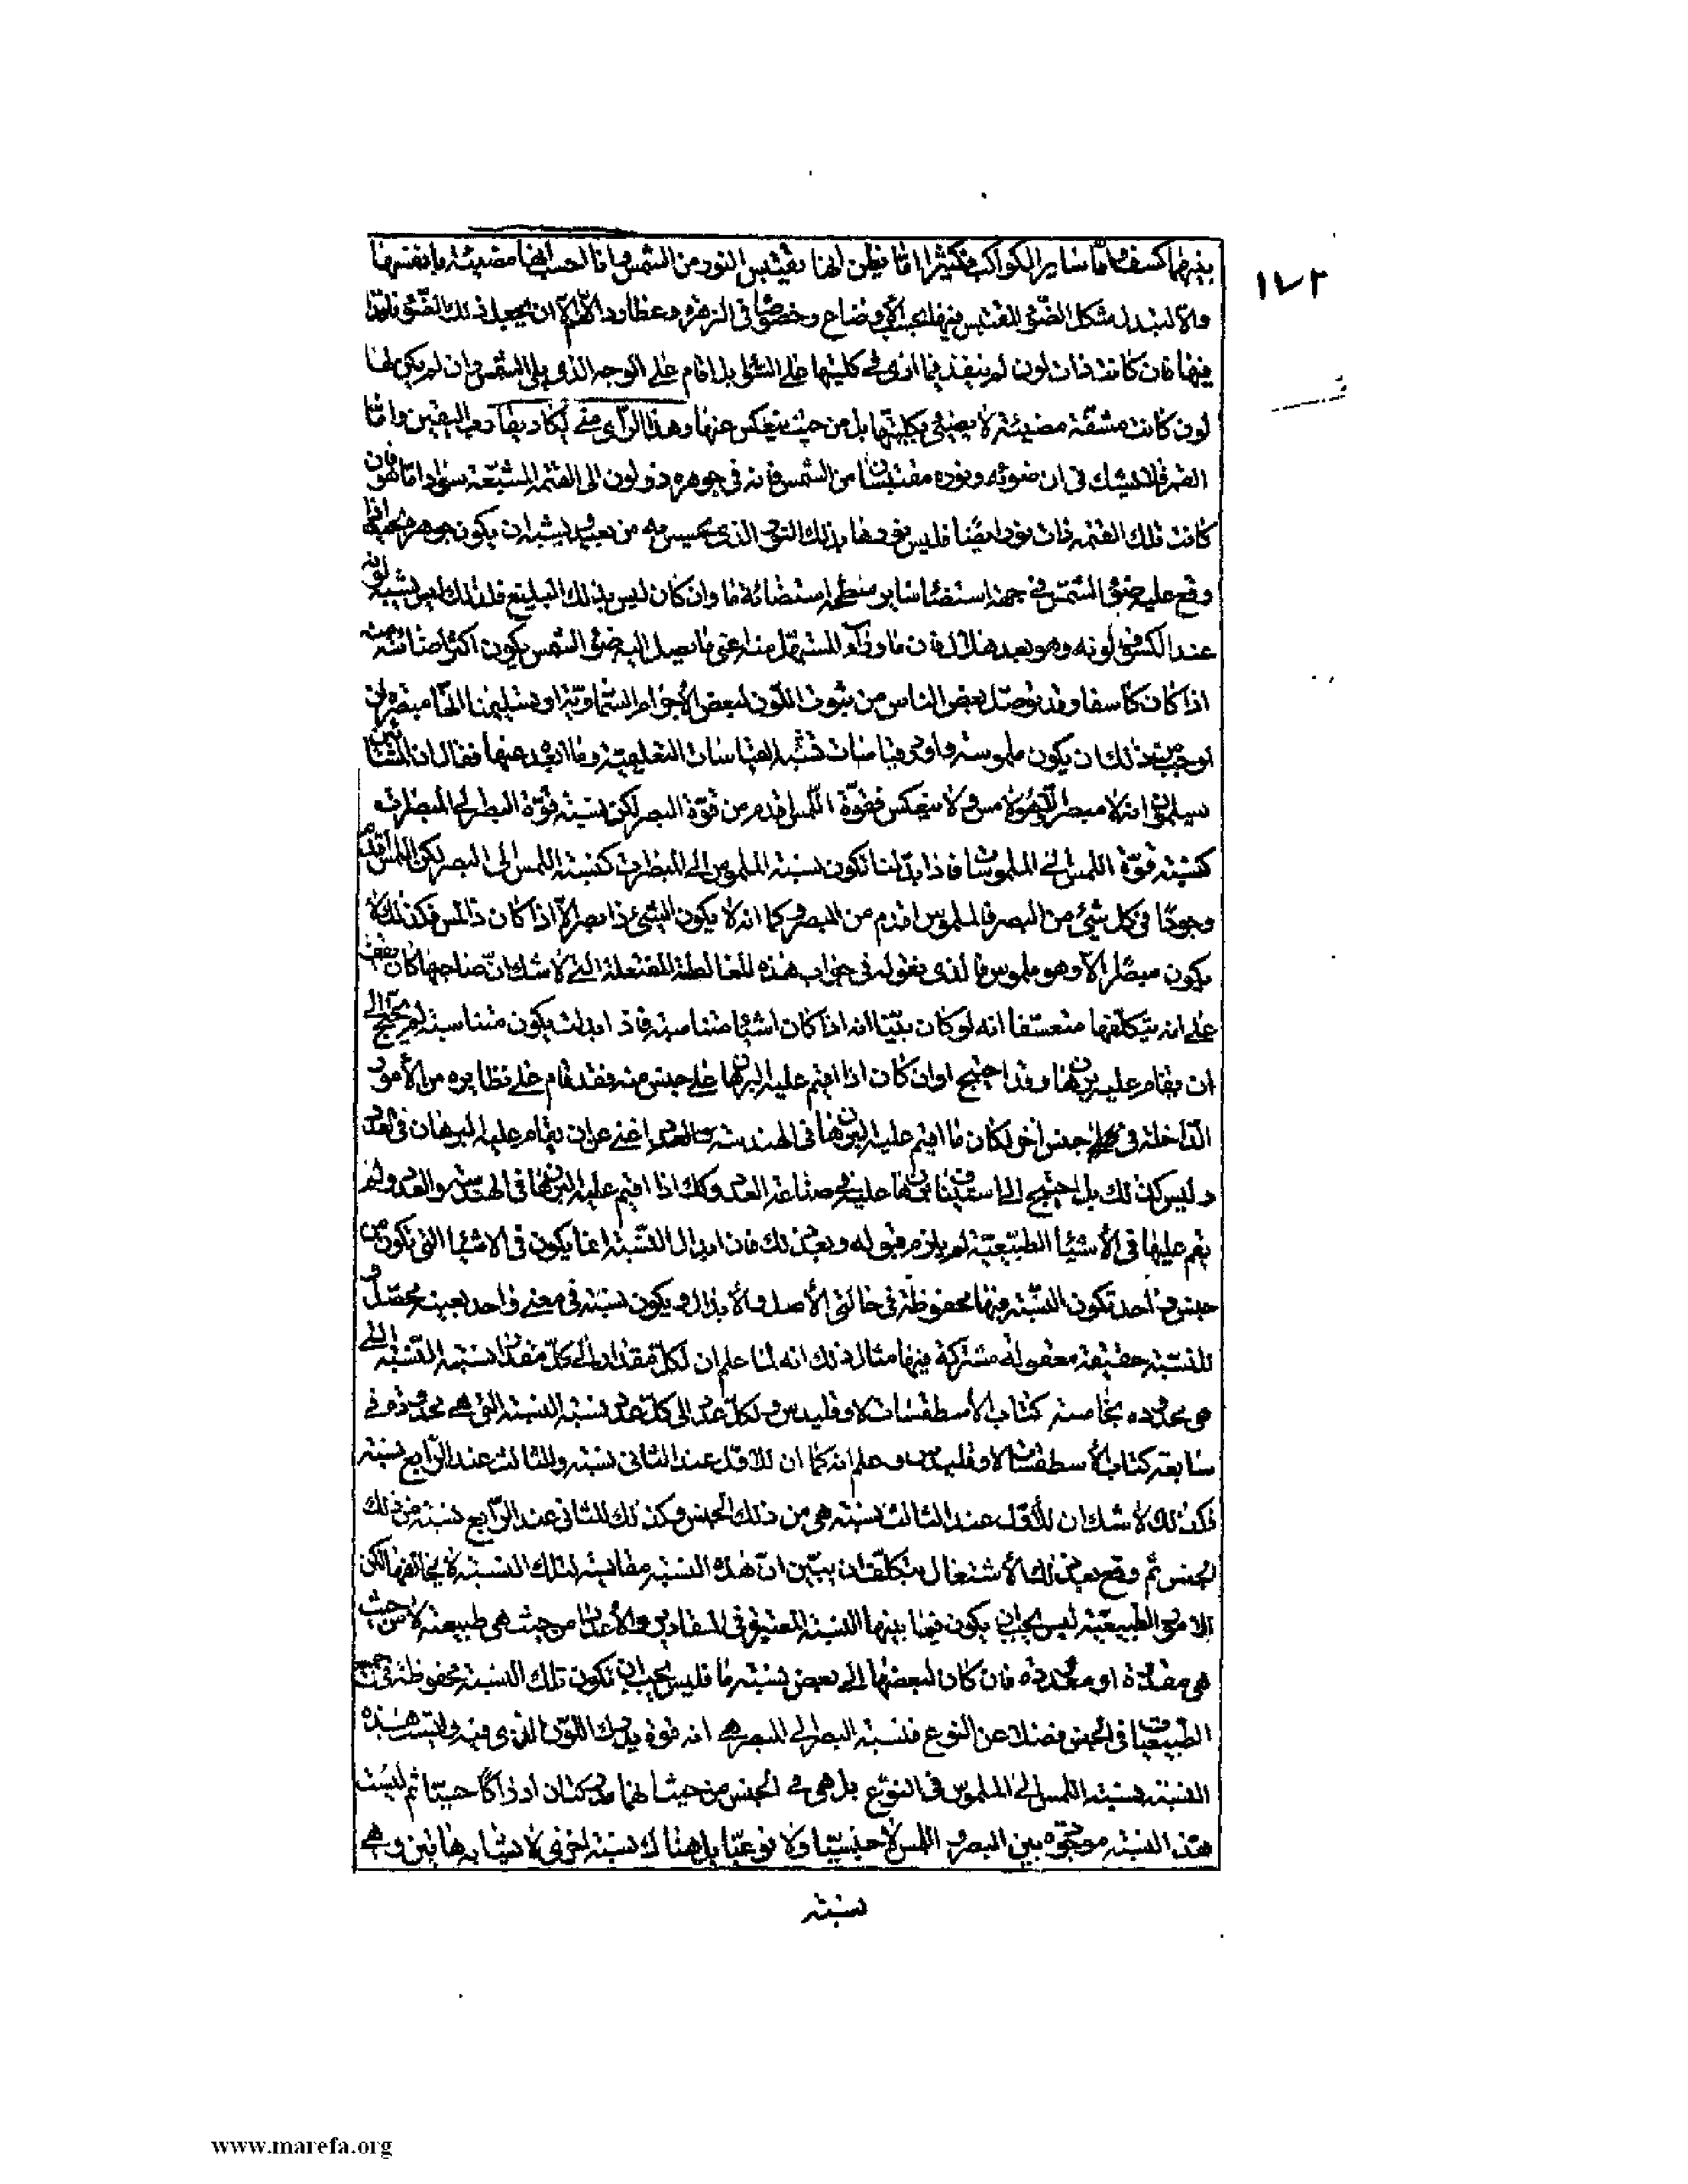 ١٧٢
بينهما كسف واما ساير الكواكب فكثيرا ما يظن انها تقتبس النور من الشمس وانا احسب انها مضيئة بانفسها
والا لتبدل شكل الضوء المقتبس فيها بحسب الأوضاع وخصوصا فى الزهرة وعطارد اللهم الا ان يجعل ذلك الضوء نافذا
فيها فان كانت ذات لون لم ينفذ فيها ادى فى كليتها على السواء بل اقام على الوجه الذى يلى الشمس وان لم يكن لها
لون كانت مشفة مضيئة لا يضيئ بكليتها بل من حيث ينعكس عنها وهذا الرأى منى يكاد يقارب اليقين واما
القمر فلا نشك فى ان ضوئه ونوره مقتبسان من الشمس وانه فى جوهره ذو لون الى القتمة المشبعة سوادا ما هو فان
كانت تلك القتمة ذات نور ايضا فليس نورها بذلك النور الذى يحس به من بعيد ويشبه ان يكون جوهره بحيث اذا
وقع عليه ضوء الشمس فى جهة استضاء ساير سطحه استضاءة ما وان كان ليس بذلك البليغ فلذلك ليس يشبه لونه
عند الكسوف لونه وهو بعد هلال فان ما وراء المستهل منه اعنى ما يصل اليه ضوء الشمس يكون اكثر اضائة منه
اذا كان كاسفا وقد توصل بعض الناس من ثبوت اللون لبعض الأجرام السماوية او تسليمنا انها مبصرة ان
نوجب من ذلك ان يكون ملموسة واورد قياسات تشبه القياسات التعليمية وما ابعد عنها فقال ان المشائين
يسلمون انه لا مبصر الا وهو لامس ولا ينعكس فقوة اللمس اقدم من قوة البصر لكن نسبة قوة البصر الى المبصرات
كنسبة قوة اللمس الى الملموسات فاذا بدلنا تكون نسبة الملموس الى المبصرات كنسبة اللمس الى البصر لكن اللمس اقدم
وجودا فى كل شيئ من البصر فالملموس اقدم من المبصر وكما انه لا يكون الشيئ ذا بصر الا اذا كان ذا لمس فكذلك لا
يكون مبصرا الا وهو ملموس فالذى نقوله فى جواب هذه المغالطة المفتعلة التى لا شك ان صاحبها كان يقف
على انه يتكلفها متعسفا انه لو كان بينا انه اذا كان اشياء متناسبة فاذا بدلت يكون متناسبة لم يحتج الى
ان يقام عليه برهان وقد احتيج او ان كان اذا اقيم عليه البرهان على جنس منه فقد قام على نظايره من الأمور
الداخلة فى جنس اخر لكان ما اقيم عليه البرهان فى الهندسة اغنى عن ان يقام عليه البرهان فى العدد
وليس كذلك بل احتيج الى استيناف برهان عليه فى صناعة العدد وكك اذا اقيم عليه البرهان فى الهندسة والعدد ولم
يقم عليها فى الأشياء الطبيعية لم يلزم قبوله وبعد ذلك فان ابدال النسبة انما يكون فى الاشياء التى تكون من
جنس واحد تكون النسبة فيها محفوظة فى حالتى الأصل والأبدال ويكون نسبته فى معنى واحد بعينه محصل و
للنسبة حقيقة معقولة مشتركة فيها مثال ذلك انه لما علم ان لكل مقدار الى كل مقدار نسبة النسبة التى
هى محدودة بخامسة كتاب الأسطقسات لاوقليدس ولكل عدد الى كل عدد نسبة النسبة التى هى محدودة فى
سابعة كتاب الأسطقسات لاوقليدس وعلم انه كما ان للاول عند الثانى نسبة والثالث عند الرابع نسبة
فكذلك لا شك ان للأول عند الثالث نسبة هى من ذلك الجنس وكذلك للثانى عند الرابع نسبة من ذلك
الجنس ثم وقع بعد ذلك الأشتغال بتكلف ان يبين ان هذه النسبة مقايسة لتلك النسبة لا يخالفها لكن
الامور الطبيعية ليس يجب ان يكون فيما بينها النسبة المعتبرة فى المقادير والأعداد من حيث هى طبيعية لا من حيث
هى مقدرة او معددة فان كان لبعضها الى بعض نسبة ما فليس يجب ان تكون تلك النسبة محفوظة فى جميع
الطبيعيات فى الجنس فضلا عن النوع فنسبة البصر الى المبصر هى انه قوة يدرك اللون الذى فيه وليست هذه
النسبة بنسبة اللمس الى الملموس فى النوع بل هى فى الجنس من حيث انهما مدركتان ادراكا حسيا ثم ليست
هذه النسبة موجودة بين البصر واللمس لا جنسيا ولا نوعيا بل هناك نسبة اخرى لا تشابه هاتين وهى
نسبة
www.marefa.org